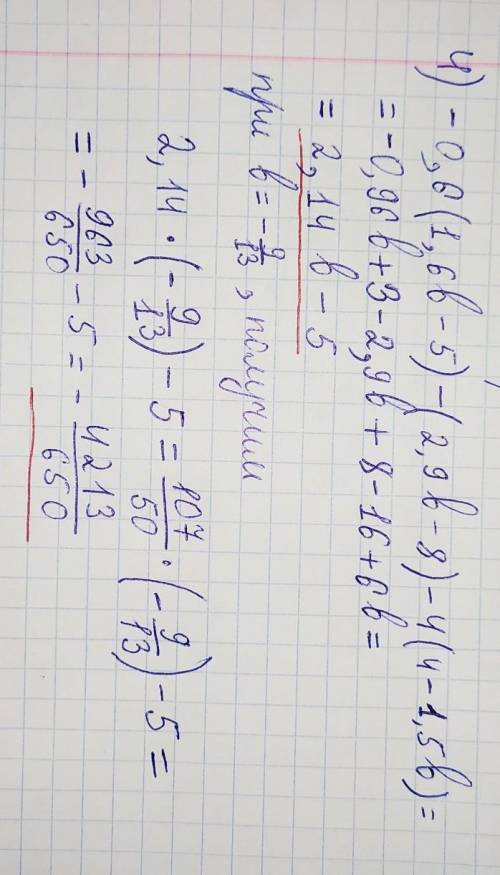 4) -0,6(1,6b-5)-(2,9b-8)-4(4-1,5b)=
=-0,96b+3-2,9b+8-16+6b=
=2,14b-5
при b=-9/13, получим
2,14·(-9/13)-5=107/50·(-9/13)-5=
=-963/650-5=-4213/650